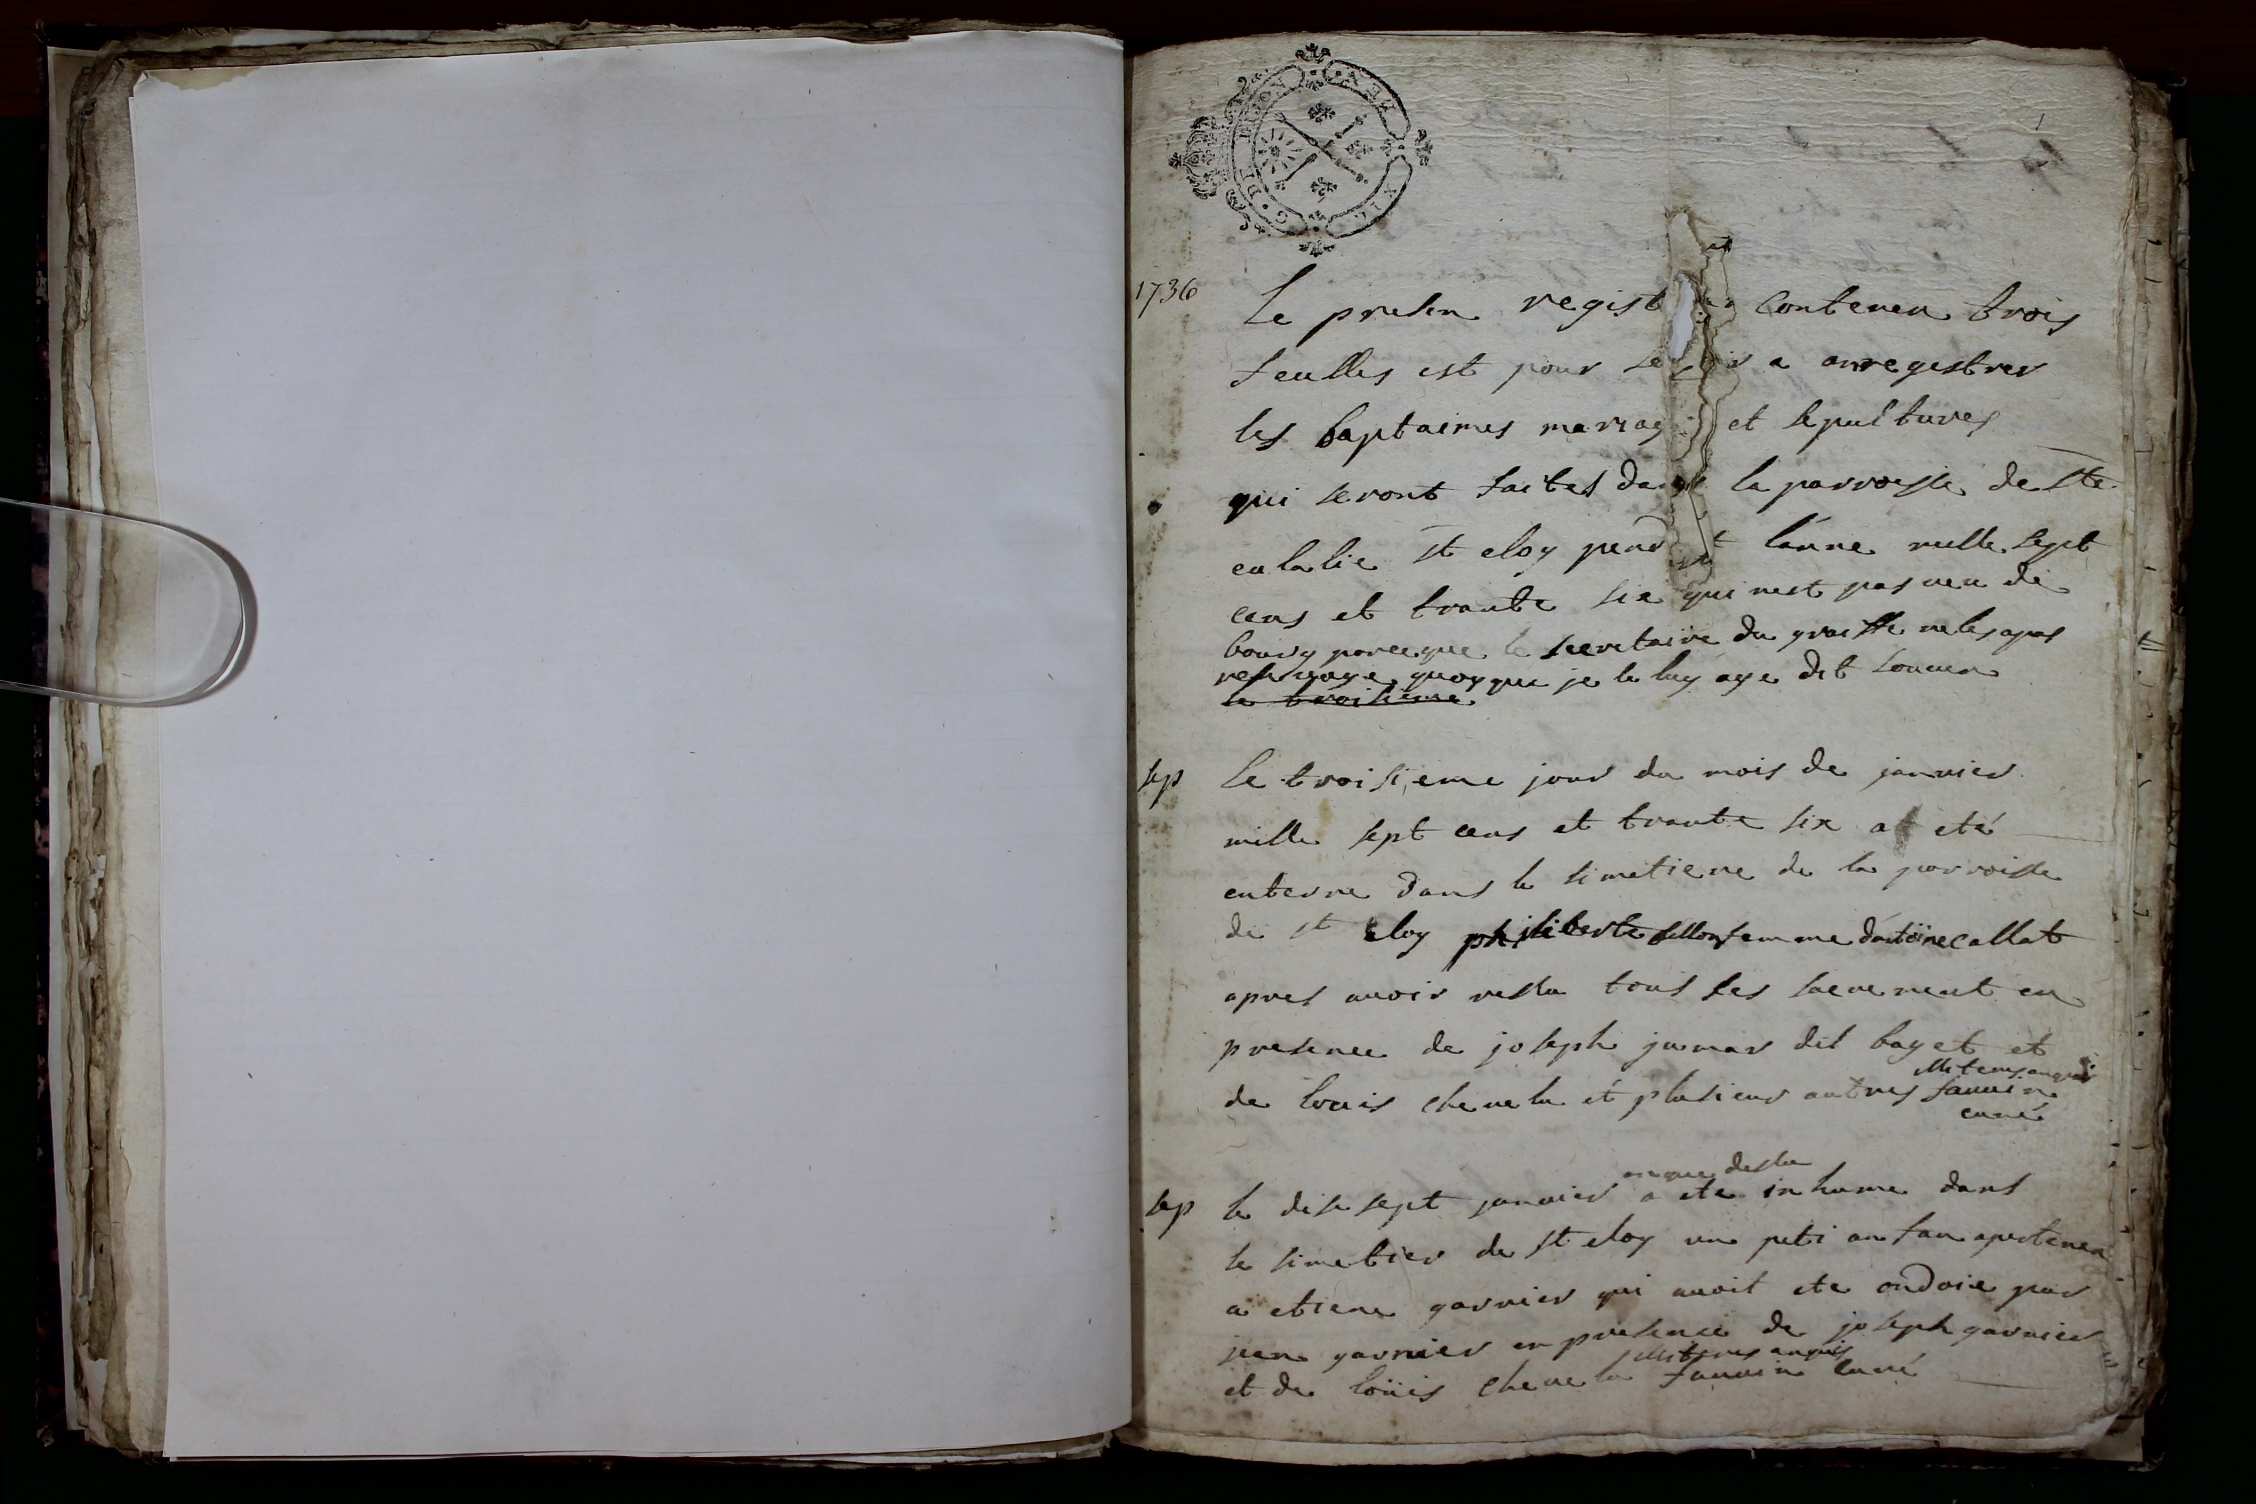 1736
Le presen regist contenen trois
feulles est pour se a anregestrer
les baptaimes mariag et sepultures
qui seront faites dans la parroisse de Ste
eulalie st eloy pend t lanne mille sept
cens et trante six qui nest pas veu de
bourg parceque le secretaire du graiffe ne les a pas
quoy que je le luy aye dit
le troisieme
sep Le troisieme jour du mois de janvier
mille sept cens et trante six at eté
enterre dans le simetiere de la parroisse
de st eloy philiberte femme dantoine callat
apres avoir ressu tous les sacrement en
presence de joseph jumar dit bayet et
de louis chevelu et plusieur autres illiteres anquis
fauvin
curé
sep le disesept janvier a ete inhume dans
le simetier de st eloy un peti anfan apertenen
a etiene garnier qui avoit ete ondoie par
jean garnier en presence de joseph garnier
et de loüis chevelu illiteres anquis fauvin curé